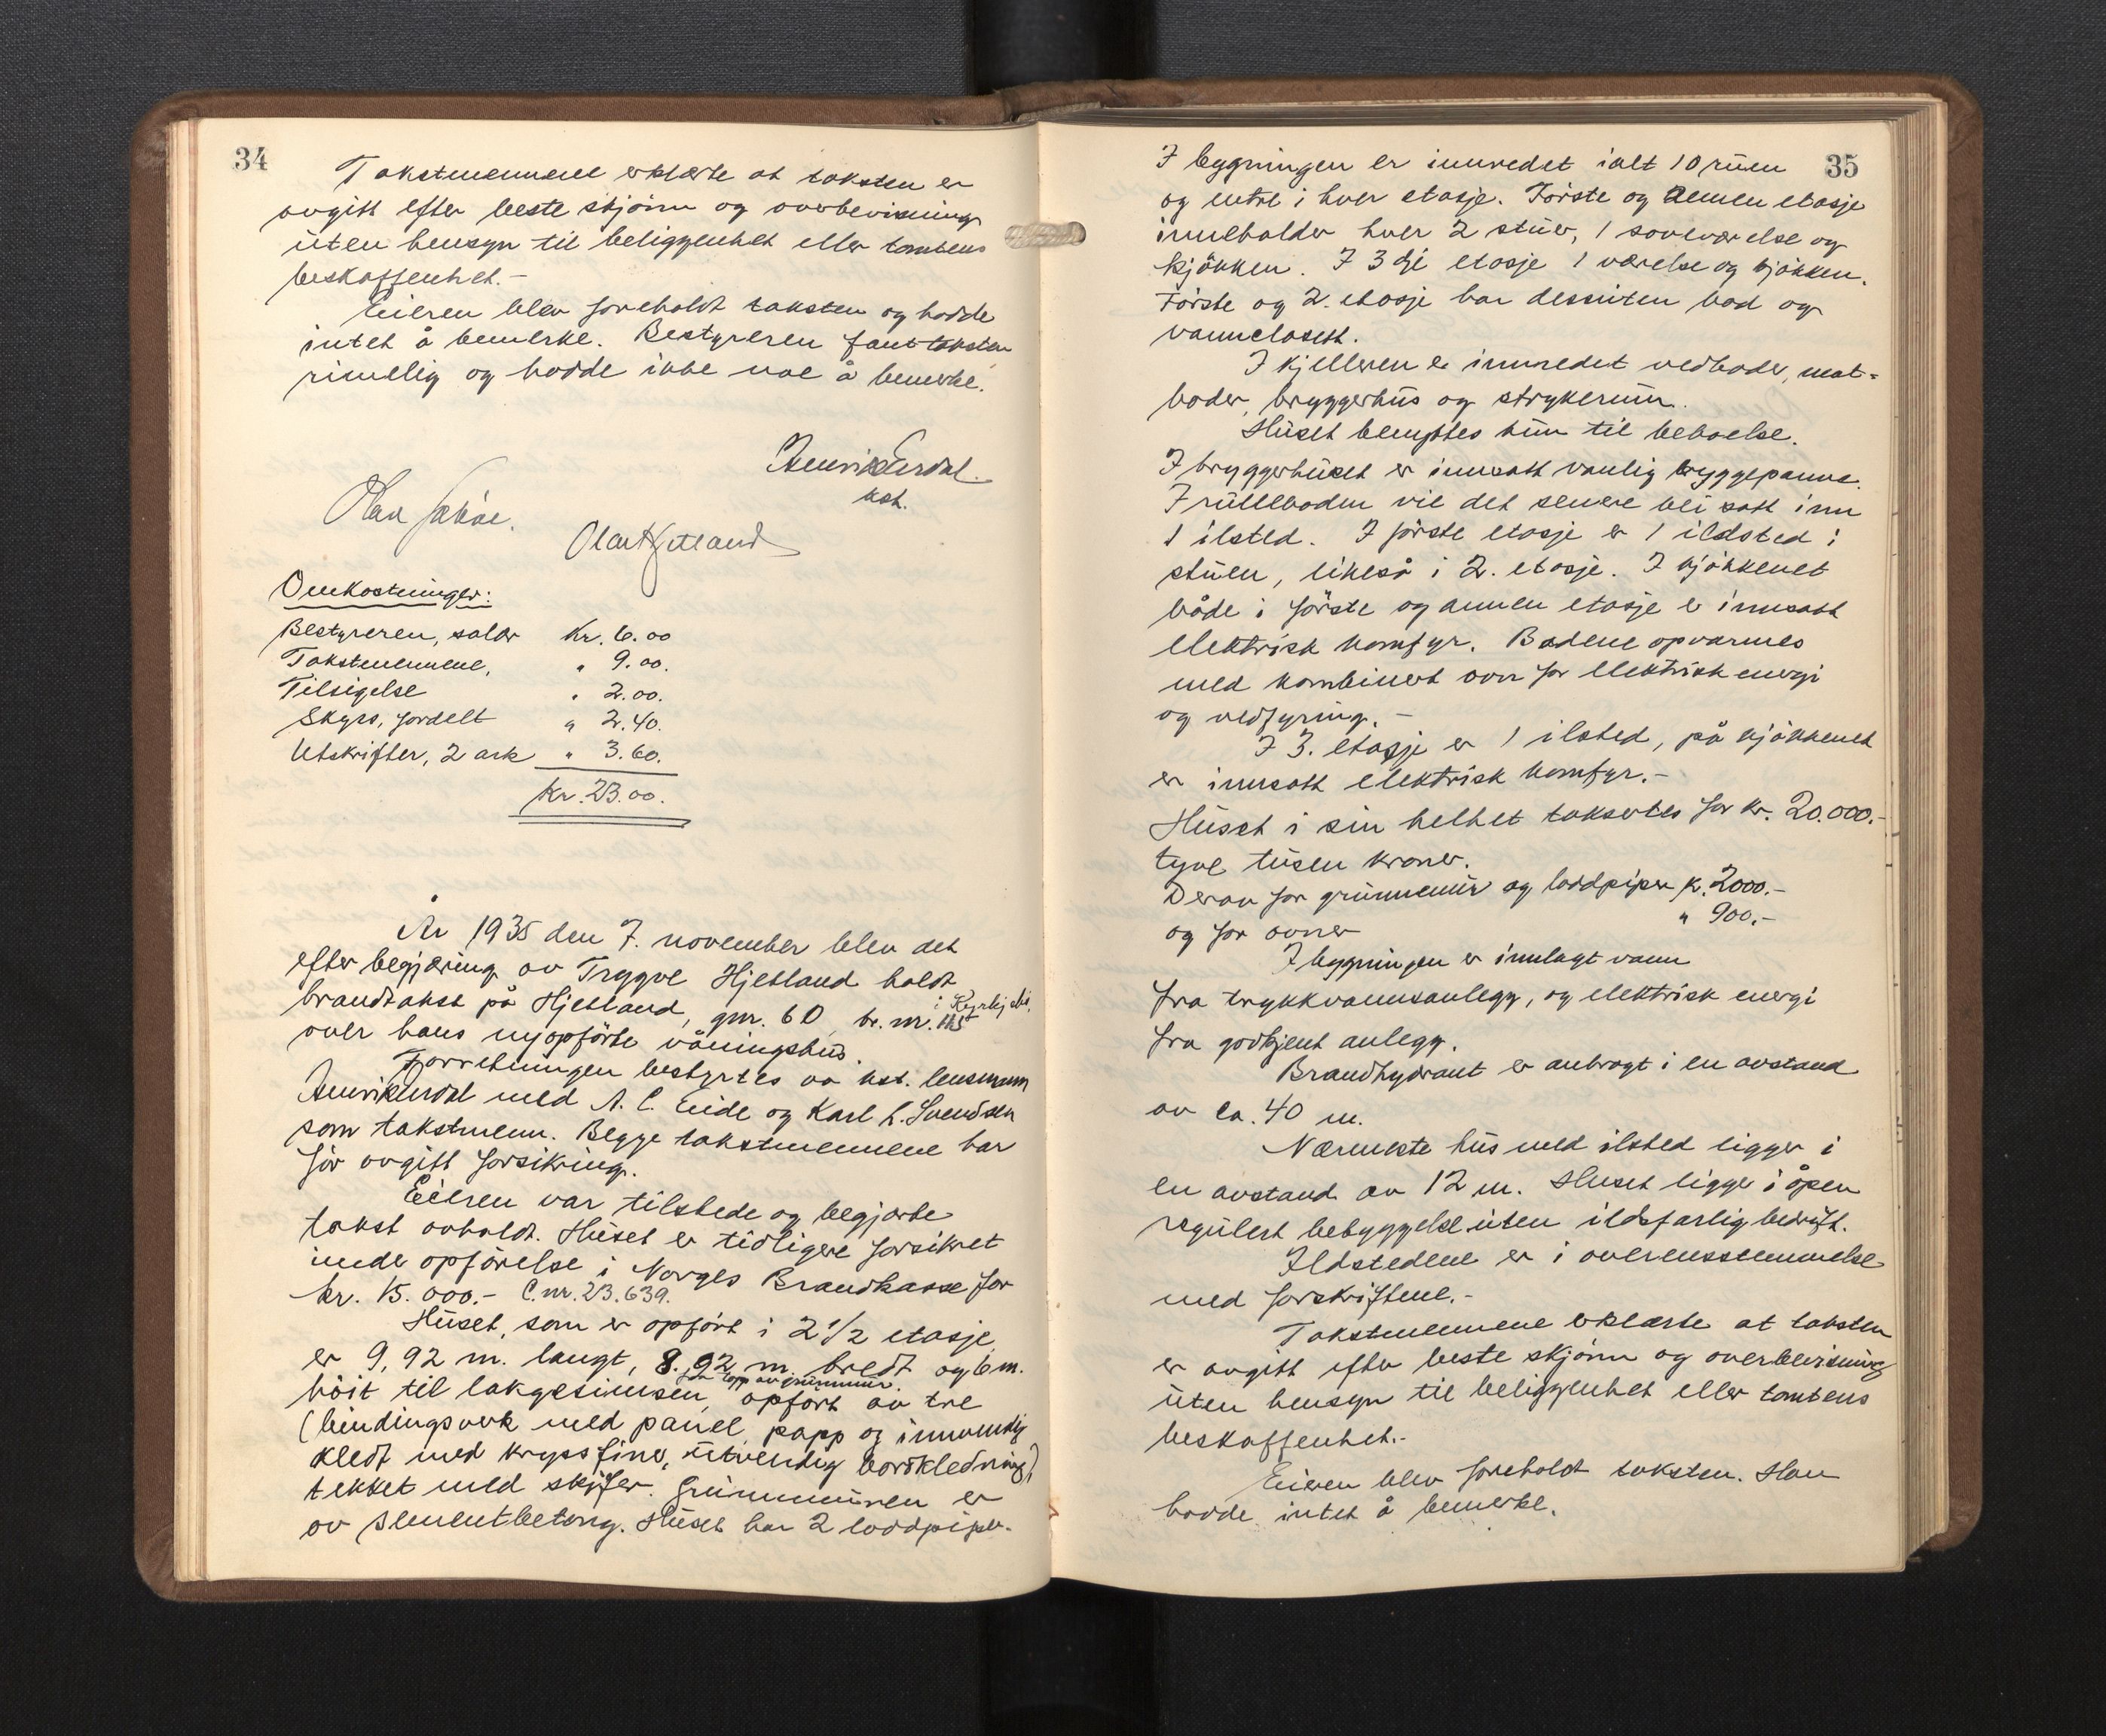 34
Takstmennene erklærte at taksten er
avgitt efter beste skjönn og overbevisning
uten hensyn til beliggenhet eller tomtens
beskaffenhet.-
Eieren blev foreholdt taksten og hadde
intet å bemerke. Bestyreren fant taksten
rimelig og hadde ikke noe å bemerke.
Henrik Erdal.
kst.
Olav
Olav Hjetland
Omkostninger:
Bestyreren, salær Kr. 6.00
Takstmennene, " 9.00.
Tilsigelse " 2.00.
Skyss, fordelt " 2.40.
Utskrifter, 2 ark " 3.60.
Kr. 23.00.
År 1935 den 7. november blev det
efter begjæring av Trygve Hjetland holdt
brandtakst på Hjetland, gnr. 60, br. nr. 115 i Kyrkjebö,
over hans nyopförte våningshus.
Forretningen bestyrtes av kst. lensmann
Henrik Erdal med A. C. Eide og Karl L. Svendsen
som takstmenn. Begge takstmennene har
för avgitt forsikring.
Eieren var tilstede og begjærte
takst avholdt. Huset er tidligere forsikret
under opförelse i Norges Brandkasse for
kr. 15.000.- C.nr. 23.639.
Huset, som er opfört i 2 1/2 etasje,
er 9,92 m. langt, 8.92 m. bredt og 6 m.
höit til takgesimsen fra topp av grunnmur, opfört av tre
(bindingsverk med panel, papp og innvendig
kledt med kryssfiner, utvendig bordkledning),
tekket med skifer. Grunnmuren er
av sementbetong. Huset har 2 loddpiper.
35
I bygningen er innredet ialt 10 rum
og entre i hver etasje. Förste og annen etasje
inneholder hver 2 stuer, 1 soveværelse og
kjökken. I 3dje etasje 1 værelse og kjökken.
Förste og 2. etasje har dessuten bad og
vannclosett.
I kjelleren er innredet vedboder, mat=
boder, bryggerhus og strykerum.
Huset benyttes kun til beboelse.
I bryggerhuset er innsatt vanlig bryggepanne.
I rulleboden vil det senere bli satt inn
1 ilsted. I förste etasje er 1 ildsted i
stuen, likeså i 2. etasje. I kjökkenet
både i förste og annen etasje er innsatt
elektrisk komfyr. Badene opvarmes
med kombinert ovn for elektrisk energi
og vedfyring.-
I 3. etasje er 1 ilsted, på kjökkenet
er innsatt elektrisk komfyr.-
Huset i sin helhet taksertes for kr. 20.000.-
tyve tusen kroner.
Derav for grunnmur og loddpiper kr. 2000.-
og for ovner " 900.-
I bygningen er innlagt vann
fra trykkvannsanlegg, og elektrisk energi
fra godkjent anlegg.
Brandhydrant er anbragt i en avstand
av ca. 40 m.
Nærmeste hus med ilsted ligger i
en avstand av 12 m. Huset ligger i åpen
regulert bebyggelse uten ildsfarlig bedrift.
Ildstedene er i overensstemmelse
med forskriftene.-
Takstmennene erklærte at taksten
er avgitt efter beste skjönn og overbevisning
uten hensyn til beliggenhet eller tomtens
beskaffenhet.-
Eieren blev foreholdt taksten. Han
hadde intet å bemerke.